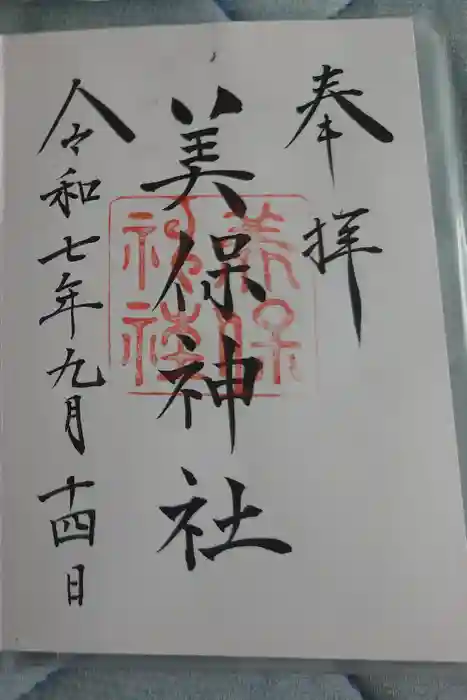 奉拝
美保神社
美保
神社
令和七年九月十四日